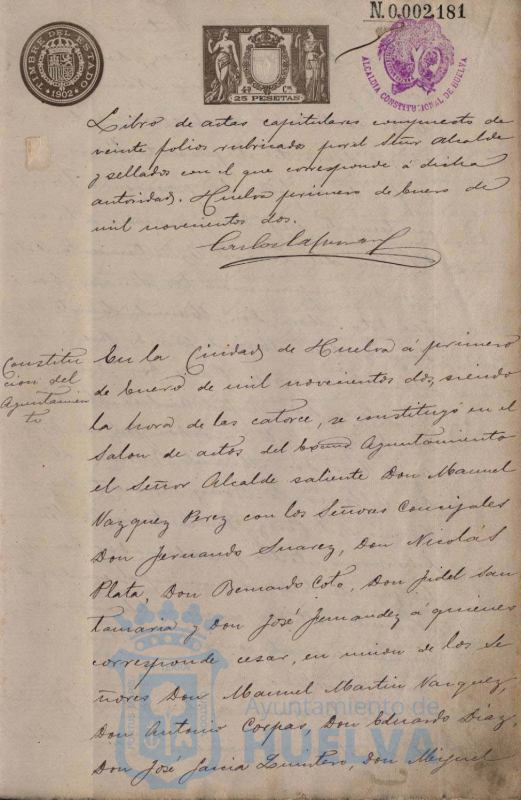 N.0,002,181
TIMBRE DEL ESTADO
1902
25 PESETAS
ALCALDIA CONSTITUCIONAL DE HUELVA
Libro de actas capitulares compuesto de
veinte folios rubricados por el Señor Alcalde
y sellados con el que corresponde á dicha
autoridad. Huelva primero de Enero de
mil novecientos dos.
Constitu
cion del
Ayuntamien
to
En la Ciudad de Huelva á primero
de Enero de mil novecientos dos, siendo
la hora de las catorce, se constituyó en el
Salon de actos del Ayuntamiento
el Señor Alcalde saliente Don Manuel
Vazquez Perez con los Señores Concejales
Don Fernando Suarez, Don Nicolás
Plata, Don Bernardo Coto, Don Fidel San
tamaria y Don José Fernandez á quienes
corresponde cesar, en union de los Se
ñores Don Manuel Martin Vazquez,
Don Antonio Cospas, Don Eduardo Diaz,
Don José Garcia Don Miguel
Ayuntamiento de
HUELVA